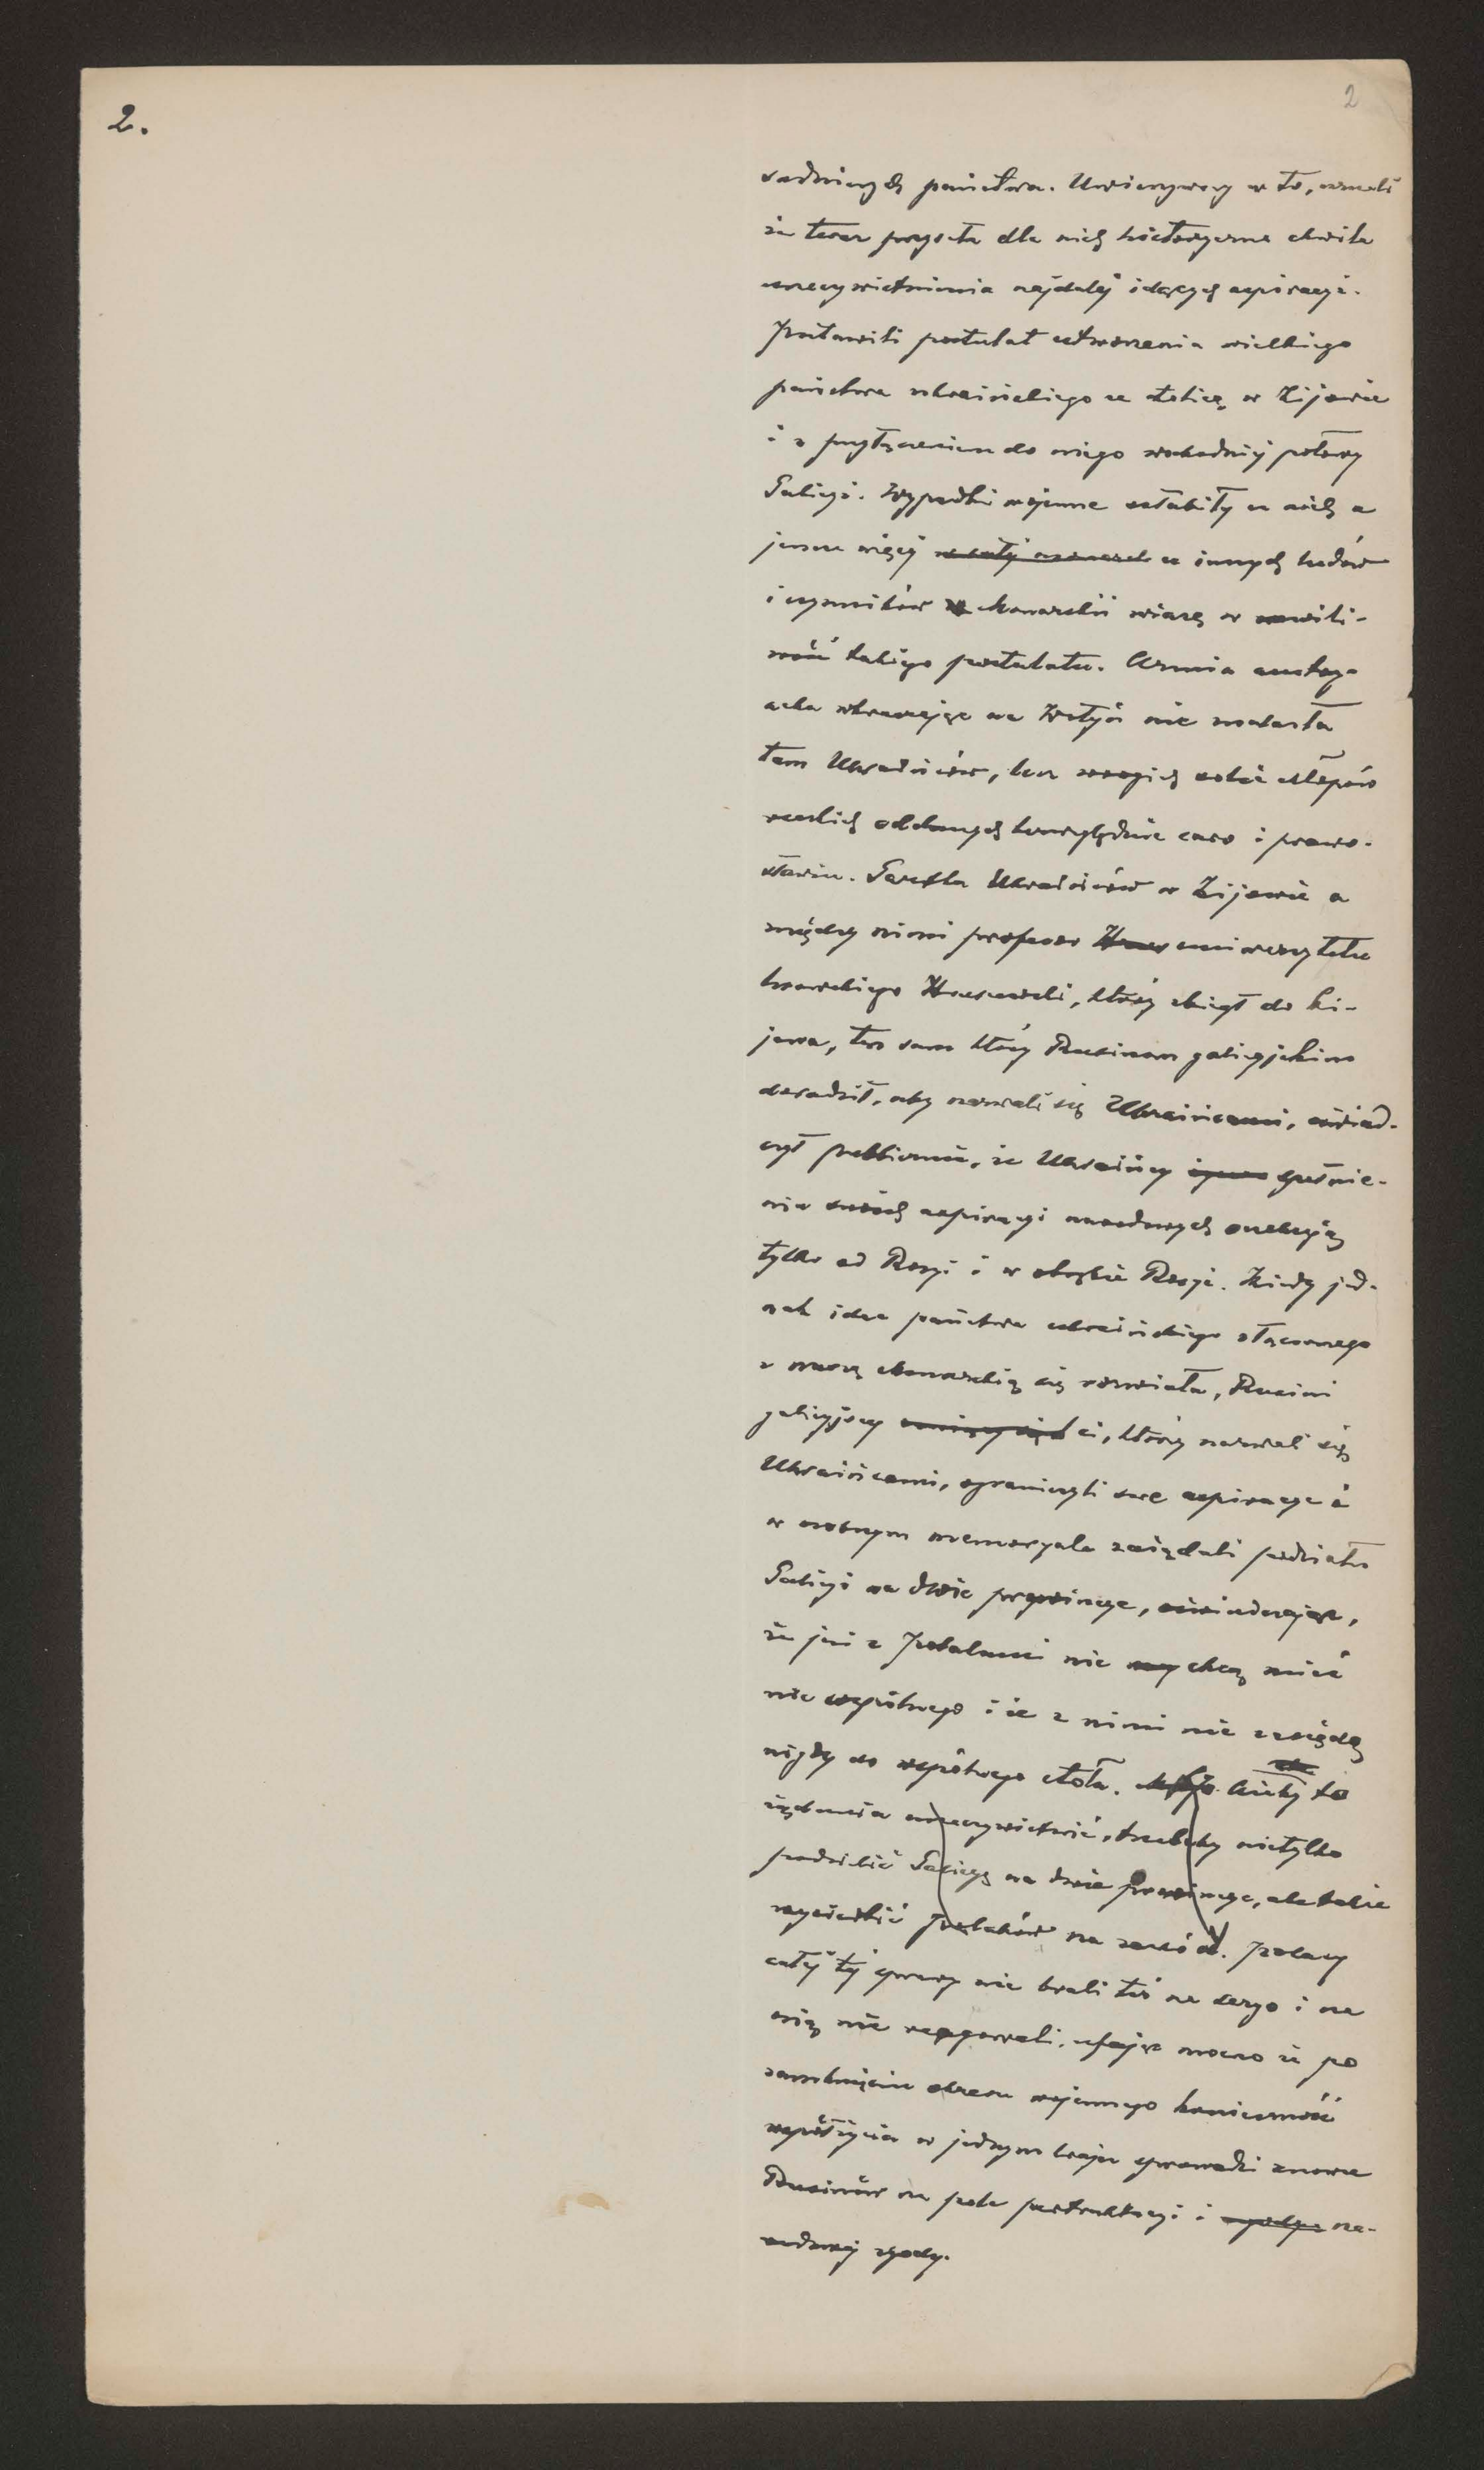 2.
2
sadniczych państwa. Uwierzywszy w to, uznali
że teraz przyszła dla nich historyczna chwila
urzeczywistnienia najdalej idących aspiracyi.
Postawili postulat utworzenia wielkiego
państwa ukraińskiego ze stolicą w Kijowie
i z przyłączeniem do niego wschodniej połowy
Galicyi. Wypadki wojenne osłabiły u nich a
jeszcze więcej u innych ludów
i czynników Monarchii wiarę w możli-
wość takiego postulatu. Armia austry-
acka wkraczając na Wołyń nie znalazła
tam Ukraińców, lecz wrogich sobie chłopów
ruskich oddanych bezwzględnie caro i prawo-
sławiu. Garstka Ukraińców w Kijowie a
między nimi profesor uniwersytetu
lwowskiego Hruszewski, który zbiegł do Ki-
jowa, ten sam który Rusinom galicyjskim
doradził, aby nazwali się Ukraińcami, oświad-
czył publicznie, że Ukraińcy spełnie-
nia swoich aspiracyi narodowych oczekują
tylko od Rosyi i w obrębie Rosyi. Kiedy jed-
nak idea państwa ukraińskiego złączonego
z naszą Monarchią się rozwiała, Rusini
galicyjscy ci, którzy nazwali się
Ukraińcami, ograniczyli swe aspiracye i
w osobnym memoryale zażądali podziału
Galicyi na dwie prowincye, oświadczając,
że już z Polakami nie chcą mieć
nic wspólnego i że z nimi nie zasiędą
nigdy do wspólnego stołu. Ażeby to
żądanie urzeczywistnić, trzebaby nietylko
podzielić Galicyę na dwie prowincye, ale także
wysiedlić Polaków na zachód. Polacy
całej tej sprawy nie brali też na seryo i na
nią nie reagowali, ufając mocno że po
zamknięciu okresu wojennego konieczność
współżycia w jednym kraju sprowadzi znowu
Rusinów na pole pertraktacyi i na-
rodowej zgody.